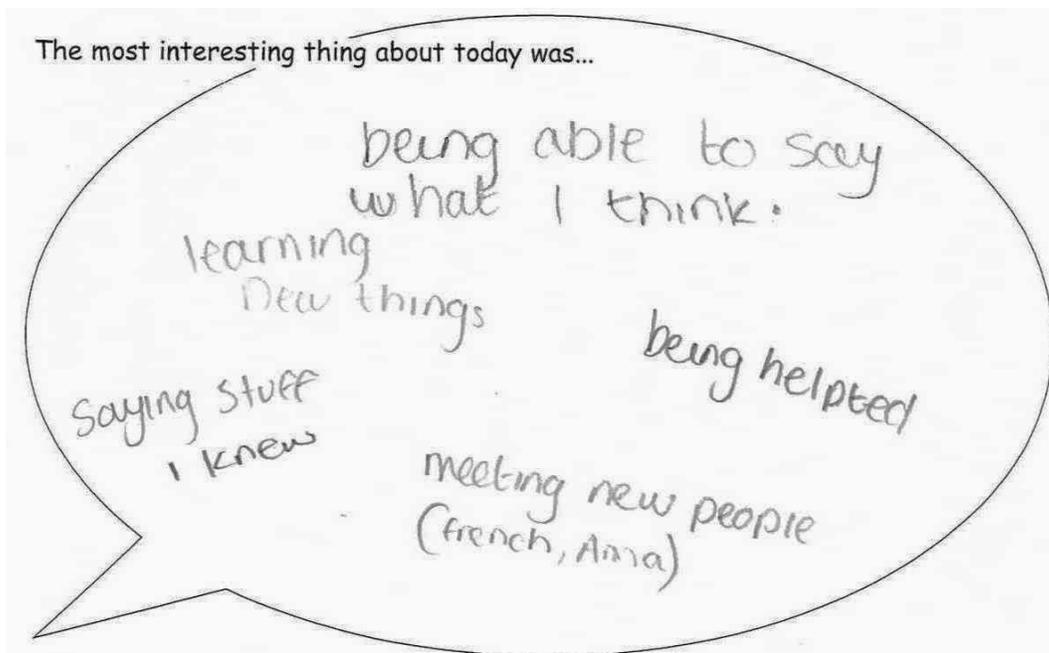 The most interesting thing about today was...
being able to say
what I think.
learning
new things
being helpted
saying stuff
I knew
meeting new people
(french, Anna)